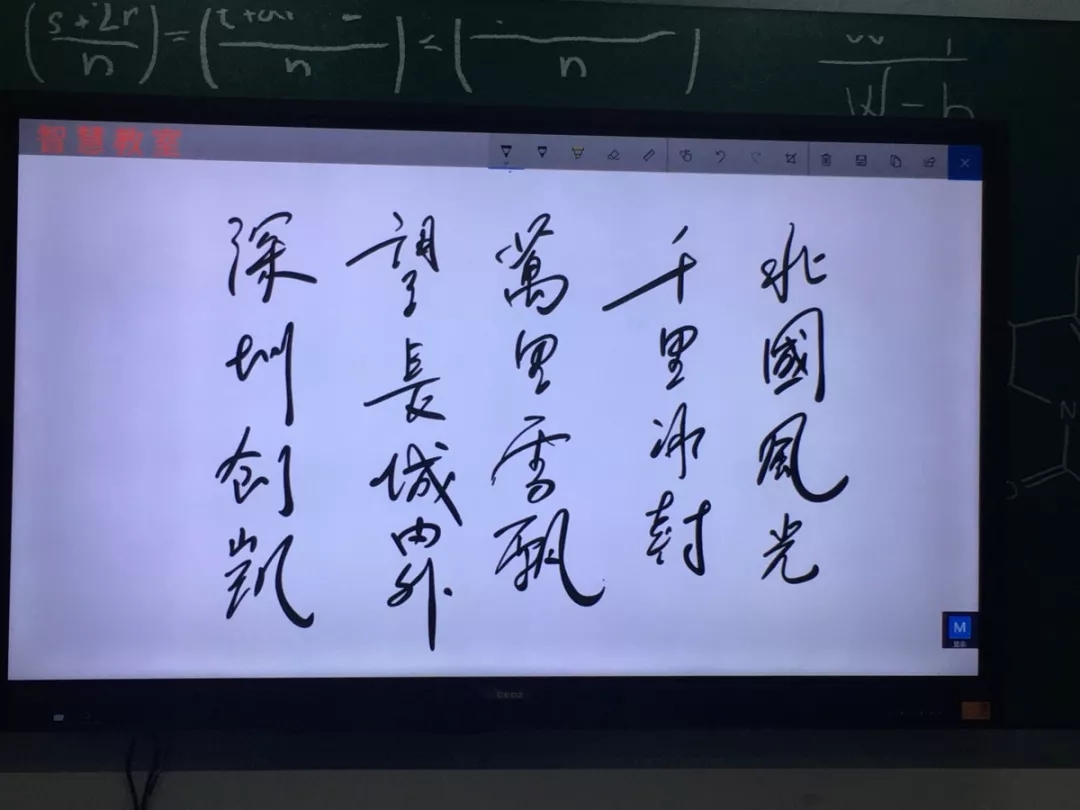 (s+2r/n)=(
n
)≤(
n
)
智慧教室
北國風光
千里冰封
萬里雪飄
望長城内外
深圳创凯
M
N